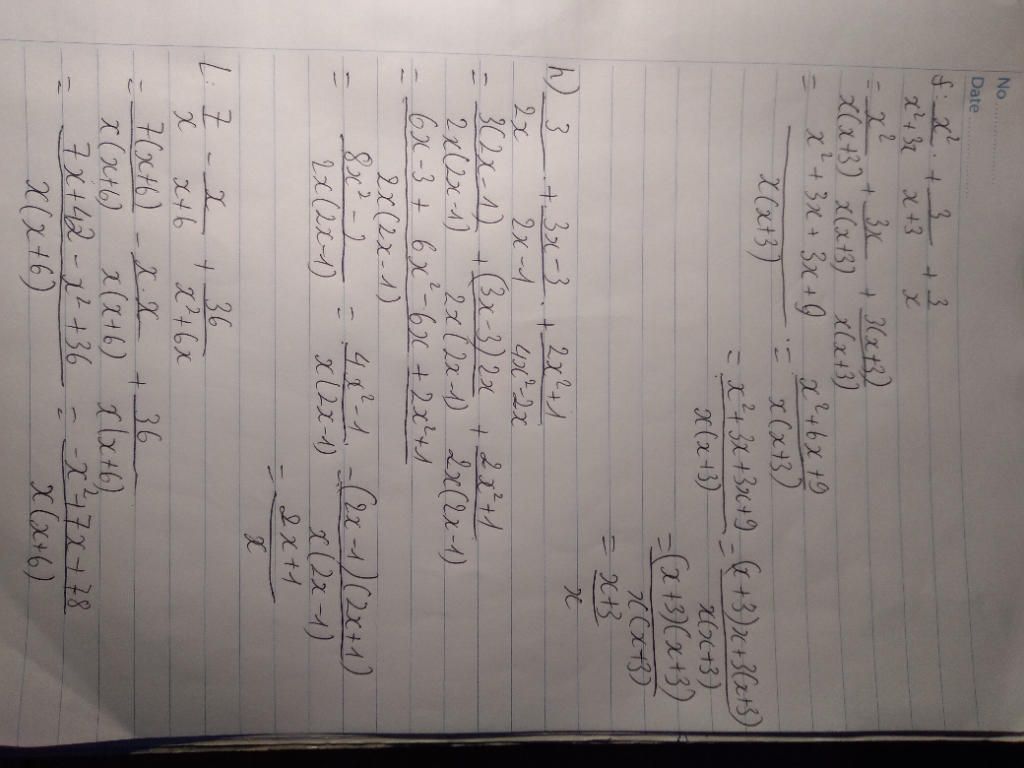 No.
Date
f. x²/(x²+3x) + 3/(x+3) + 3/x
= x²/(x(x+3)) + 3x/(x(x+3)) + 3(x+3)/(x(x+3))
= (x²+3x+3x+9)/(x(x+3)) = (x²+6x+9)/(x(x+3))
= (x²+3x+3x+9)/(x(x+3)) = ((x+3)x+3(x+3))/(x(x+3))
= ((x+3)(x+3))/(x(x+3))
= (x+3)/x
h) 3/(2x) + (3x-3)/(2x-1) + (2x²+1)/(4x²-2x)
= 3(2x-1)/(2x(2x-1)) + (3x-3)2x/(2x(2x-1)) + (2x²+1)/(2x(2x-1))
= (6x-3+6x²-6x+2x²+1)/(2x(2x-1))
= (8x²-2)/(2x(2x-1)) = (4x²-1)/(x(2x-1)) = ((2x-1)(2x+1))/(x(2x-1))
= (2x+1)/x
l. 7/x - x/(x+6) + 36/(x²+6x)
= 7(x+6)/(x(x+6)) - x.x/(x(x+6)) + 36/(x(x+6))
= (7x+42-x²+36)/(x(x+6)) = (-x²+7x+78)/(x(x+6))